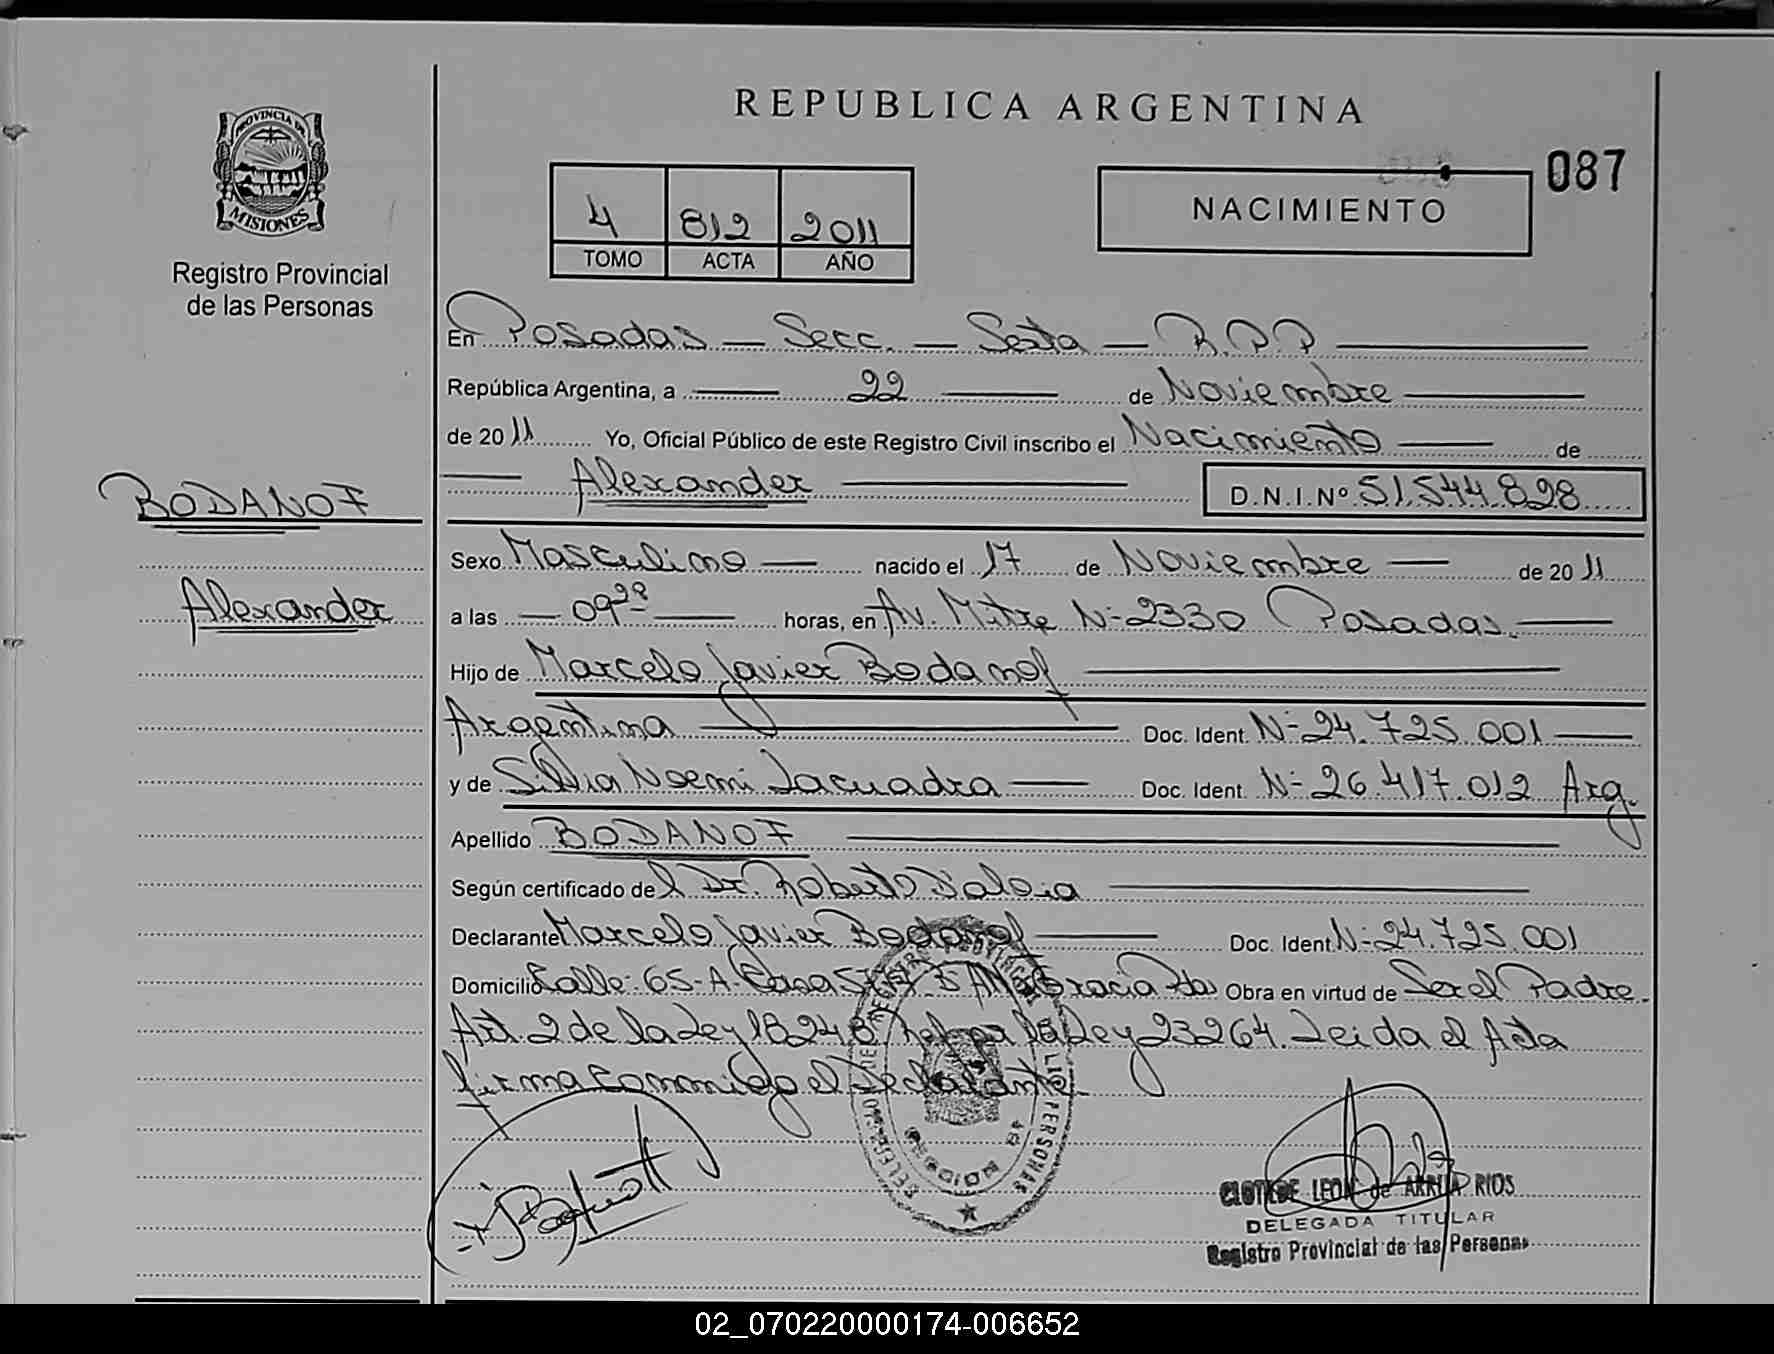 REPUBLICA ARGENTINA
PROVINCIA DE
MISIONES
Registro Provincial
de las Personas
4 812 2011
TOMO ACTA AÑO
NACIMIENTO
087
En Posadas — Secc. — Sexta — R.P.P
República Argentina, a — 22 — de Noviembre
de 2011 Yo, Oficial Público de este Registro Civil inscribo el Nacimiento — de
— Alexander — D.N.I.Nº 51.544.828
BODANOF
Alexander
Sexo Masculino — nacido el 17 de Noviembre — de 2011
a las — 09 28 — horas, en Av. Mitre N- 2330 Posadas. —
Hijo de Marcelo Javier Bodanof
Argentina — Doc. Ident. N- 24.725.001 —
y de Silvia Noemi Lacuadra — Doc. Ident. N- 26.417.012 Arg.
Apellido BODANOF
Según certificado del Dr. Roberto D'aloia
Declarante Marcelo Javier Bodanof — Doc. Ident. N- 24.725.001
Domicilio Calle: 65-A- Casa Obra en virtud de Ser el Padre.
Art. 2 de la Ley 18248 la Ley 23264. Leida el Acta
firma Conmigo el Declarante.
CLOTILDE LEON de ARRUA RIOS
DELEGADA TITULAR
Registro Provincial de las Personas
02_070220000174-006652